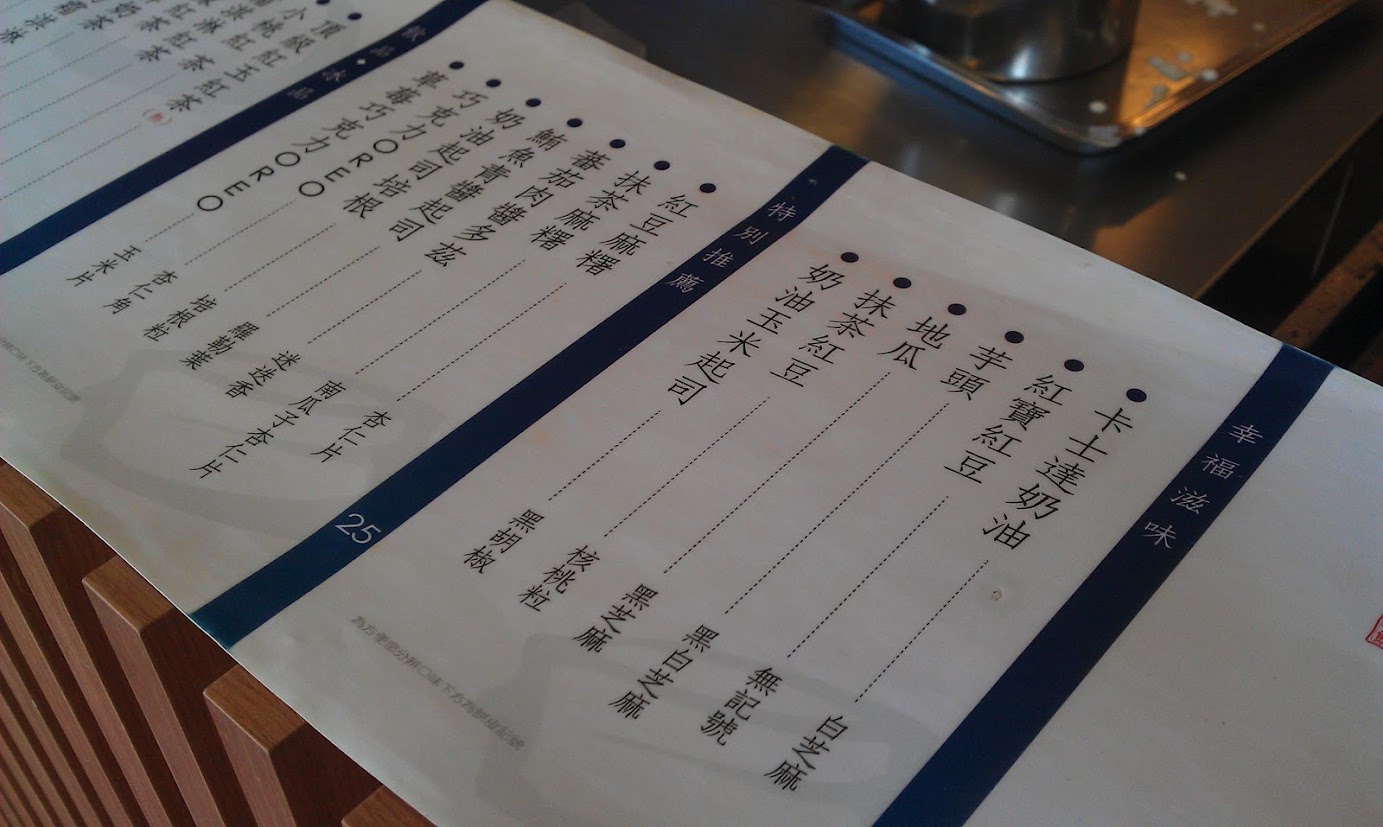 幸福滋味
卡士達奶油 白芝麻
紅寶紅豆 無記號
芋頭 黑白芝麻
地瓜 黑芝麻
抹茶紅豆 核桃粒
奶油玉米起司 黑胡椒
為方便您分辨口味 下方為餅皮記號
特別推薦 25
紅豆麻糬 杏仁片
抹茶麻糬 南瓜子杏仁片
蕃茄肉醬多茲 迷迭香
鮪魚青醬起司 羅勒葉
奶油起司培根 培根粒
巧克力OREO 杏仁角
草莓巧克力OREO 玉米片
飲品◆冰品
頂級紅玉紅茶(熱)